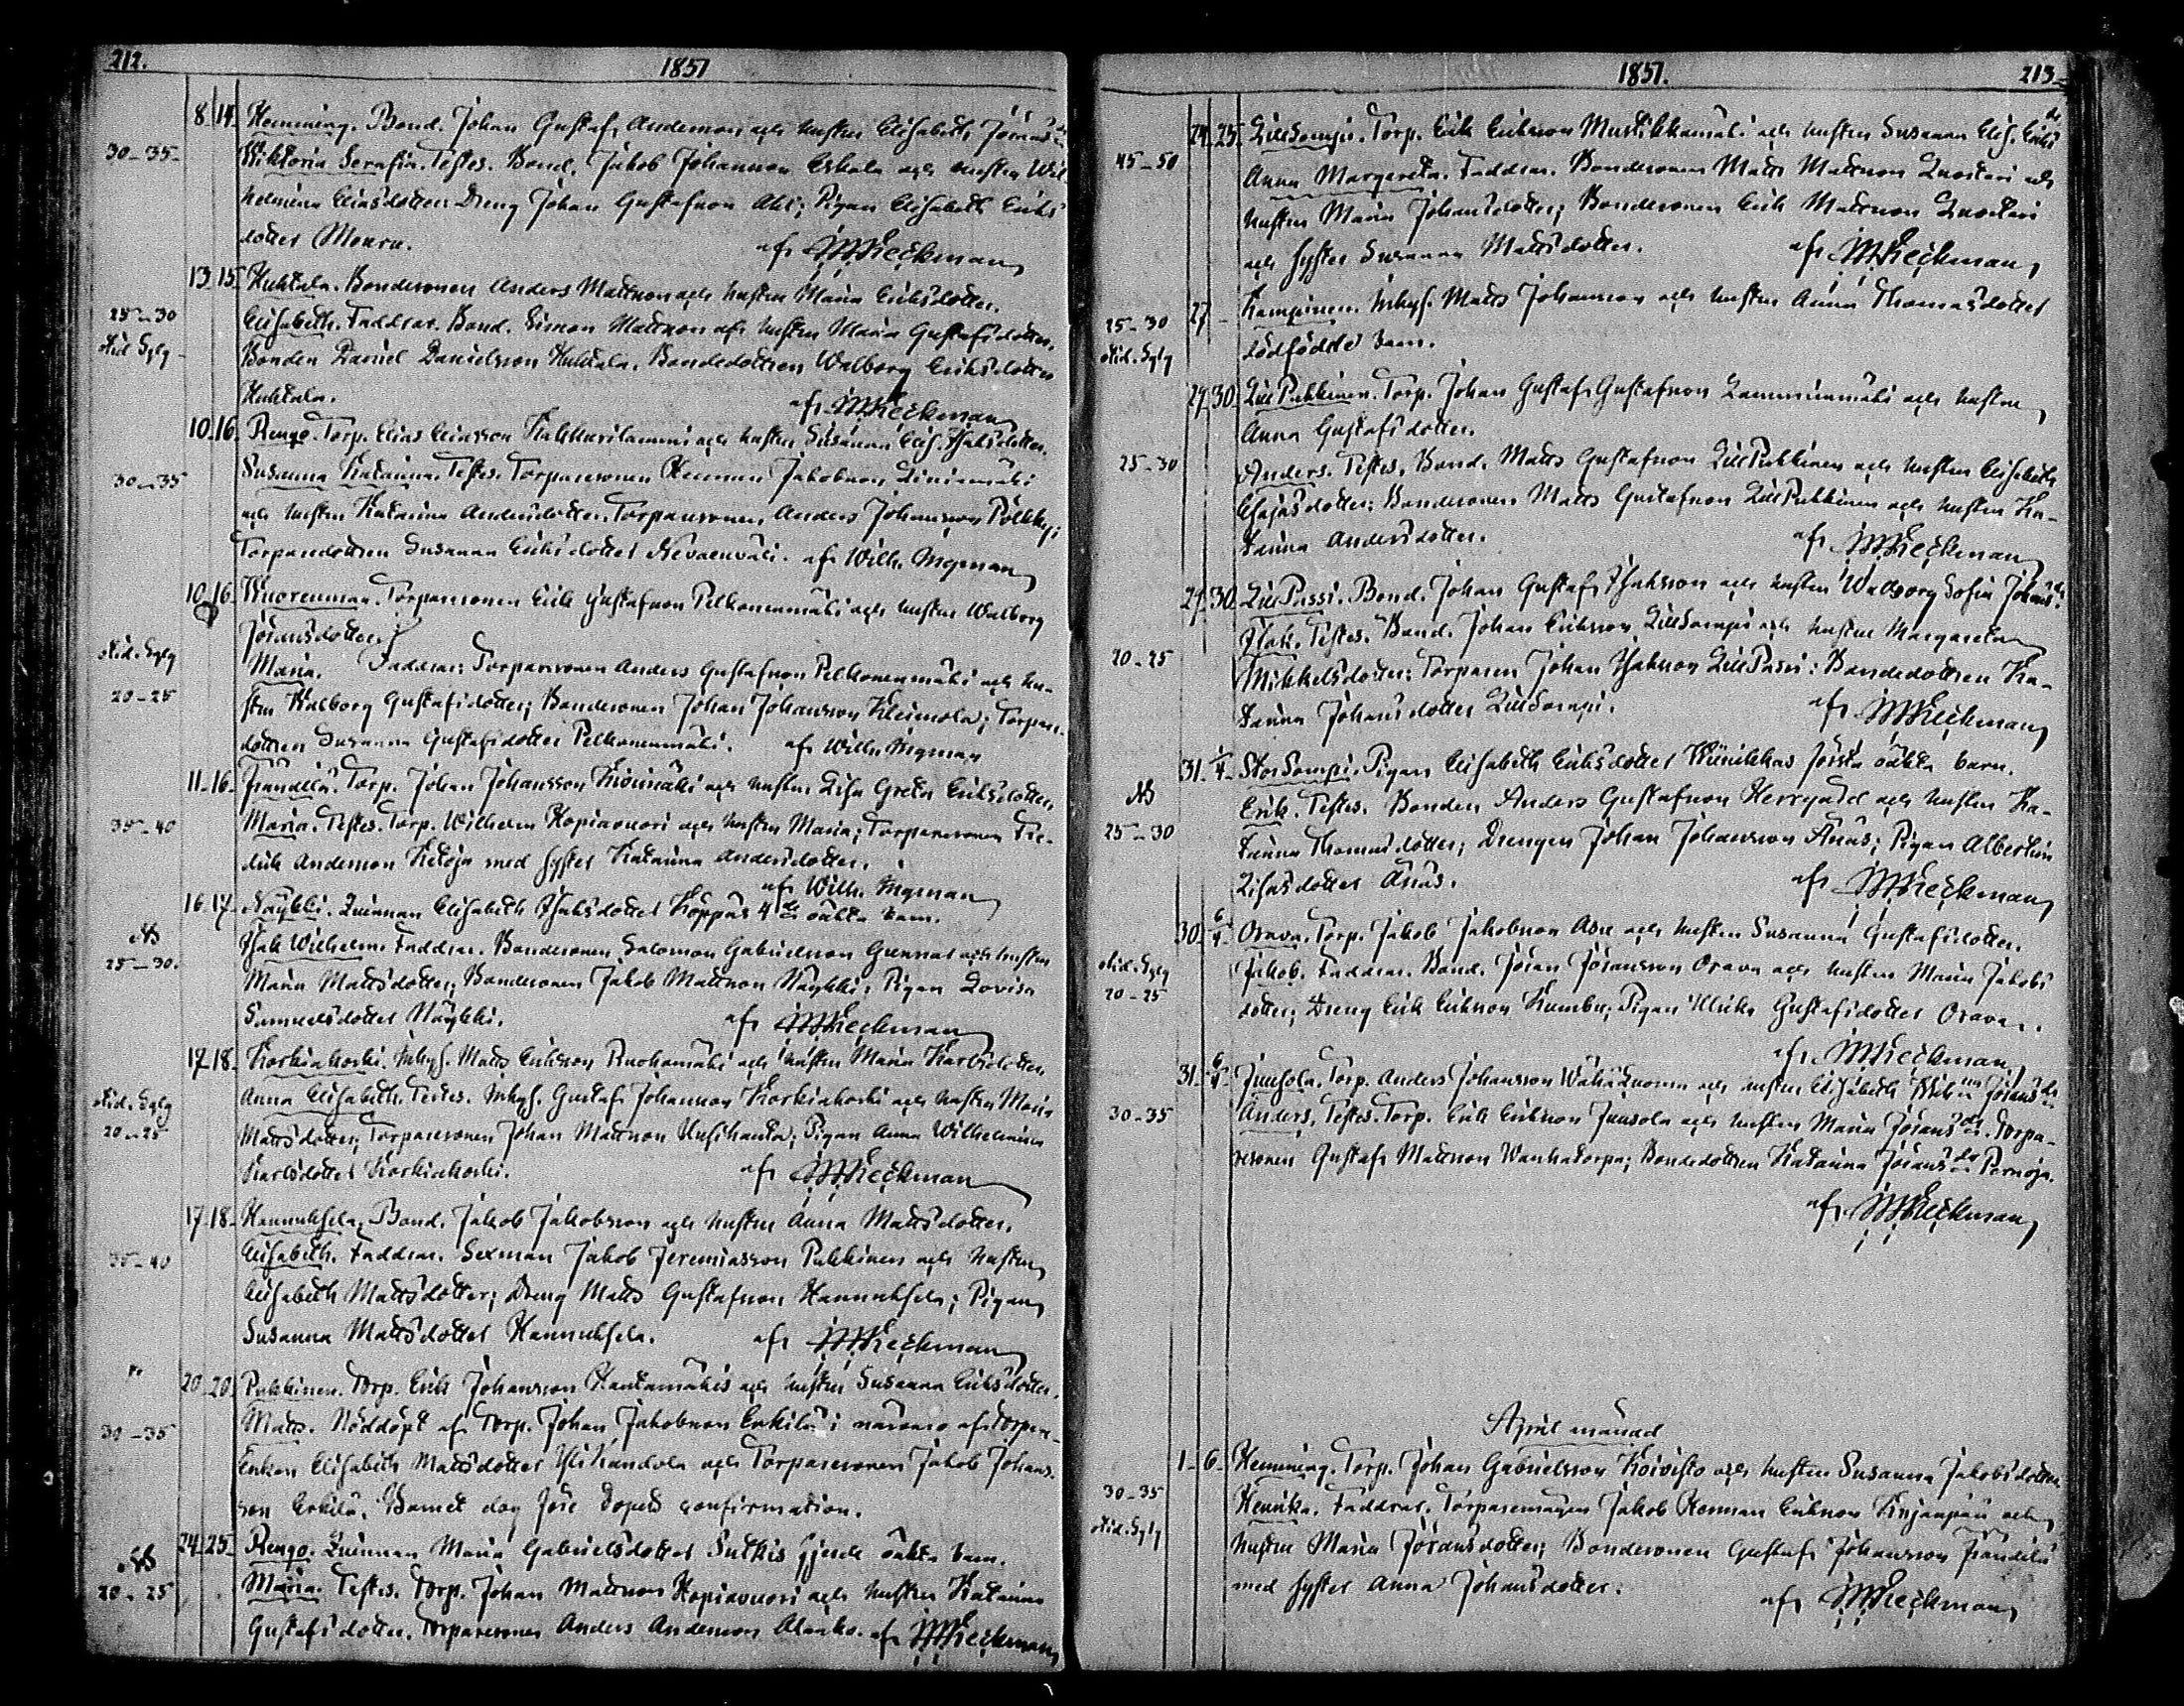 212.
1851
8 14. Hemming. Bond. Johan Gustaf Andersson och hustru Elisabeth Jörans dr
30-35- Wiktoria Serafia. Testes. Bond. Jakob Johansson Eskola och hustru Wil-
helmina Eliasdotter; Dreng Johan Gustafsson Ahl; Pigan Elisabeth Eriks
dotter Mouru.
af MKeckman
13 15. Huhtala. Bondesonen Anders Mattsson och hustru Maria Eriksdotter.
25-30 Elisabeth. Faddrar. Bond. Simon Mattsson och hustru Maria Gustafsdotter.
Bonden Daniel Danielsson Huhtala. Bondedottren Walborg Eriksdotter
Huhtala.
af MKeckman
10 16. Rengo. Torp. Elias Eliasson och hustru Susanna Elis. Isaksdotter.
30-35 Susanna Katarina. Testes. Torparesonen Herman Jakobsson Liinamäki
och hustru Katarina Andersdotter. Torparesonen Anders Johansson Pölkky;
Torparedottren Susanna Eriksdotter Nevaenväli. af Wilh. Ingman
10 16. Wuorenmaa. Torparesonen Erik Gustafsson Pelkonenmäki och hustru Walborg
Jöransdotter
Maria. Faddrar: Torparesonen Anders Gustafsson Pelkonenmäki och hu-
20-25 stru Walborg Gustafsdotter; Bondesonen Johan Johansson Kleimola; Torpare-
dottren Susanna Gustafsdotter Pelkonenmäki. af Wilh. Ingman
11-16. Frändilä. Torp. Johan Johansson Kivimäki och hustru Lisa Greta Eriksdotter.
35-40 Maria. Testes. Torp. Wilhelm Hopiavuori och hustru Maria; Torparesonen Fre-
drik Andersson Ketoja med syster Katarina Andersdotter.
af Wilh. Ingman
16 17. Näykki. Qvinnan Elisabeth Isaksdotter Koppas 4de oäkta barn.
25-30. Isak Wilhelm. Faddrar. Bondesonen Salomon Gabrielsson Gunnar och hustru
Maria Mattsdotter; Bondesonen Jakob Mattsson Näykki; Pigan Lovisa
Samuelsdotter Näykki.
af MKeckman
17 18. Korkiakoski. Inhys. Matts Eriksson Ruohomäki och hustru Maria Karlsdotter.
20-25 Anna Elisabeth. Testes. Inhys. Gustaf Johansson Korkiakoski och hustru Maria
Mattsdotter; Torparesonen Johan Mattsson Uusihanta; Pigan Anna Wilhelmina
Karlsdotter Korkiakoski.
af MKeckman
17 18. Hannuksela. Bond. Jakob Jakobsson och hustru Anna Mattsdotter.
35-40 Elisabeth. Faddrar. Sexman Jakob Jeremiasson Pukkinen och hustru
Elisabeth Mattsdotter; Dreng Matts Gustafsson Hannuksela; Pigan
Susanna Mattsdotter Hannuksela.
af MKeckman
20 20. Pukkinen. Torp. Erik Johansson Hautamäkis och hustru Susanna Eriksdotter.
30-35 Matts. Nöddöpt af Torp. Johan Jakobsson Erkilä i närvaro af Torpare-
enkan Elisabeth Mattsdotter och Torparesonen Jakob Johans-
son Erkilä. Barnet dog före dopets confirmation.
24 25. Rengo. Qvinnan Maria Gabrielsdotter Sutkis fjerde oäkta barn.
20-25 Maria. Testes. Torp. Johan Mattsson Hopiavuori och hustru Katarina
Gustafsdotter. Torparesonen Anders Andersson Alanko. af MKeckman
1851.
213.
24 25. LillSompi. Torp. Erik Eriksson Mustikkamäki och hustru Susanna Elis. Eriks dr
45-50 Anna Margareta. Faddrar. Bondesonen Matts Mattsson Luotari och
hustru Maria Johansdotter; Bondesonen Erik Mattsson Luotari
och syster Susanna Mattsdotter.
af MKeckman
27 - Kampinen. Inhys. Matts Johansson och hustru Anna Thomasdotter
25-30 dödfödde barn.
29 30. LillPukkinen. Torp. Johan Gustaf Gustafsson Lamminmäki och hustru
Anna Gustafsdotter.
25-30 Anders. Testes. Bond. Matts Gustafsson LillPukkinen och hustru Elisabeth
Esajasdotter; Bondesonen Matts Gustafsson LillPukkinen och hustru Ka-
tarina Andersdotter.
af MKeckman
29 30. LillPassi. Bond. Johan Gustaf Isaksson och hustru Walborg Sofia Johans dr.
20-25 Isak. Testes. Bond. Johan Eriksson LillSompi och hustru Margareta
Mikkelsdotter; Torparen Johan Isaksson LillPassi; Bondedottren Ka-
tarina Johansdotter LillSompi.
af MKeckman
31. 1/4 StorSompi. Pigan Elisabeth Eriksdotter Wiinikkas första oäkta barn.
25-30 Erik. Testes. Bonden Anders Gustafsson Herrgård och hustru Ka-
tarina Thomasdotter; Drengen Johan Johansson Ånäs; Pigan Albertina
Lisasdotter Ånäs.
af MKeckman
30. 6/4 Orava. Torp. Jakob Jakobsson Asu och hustru Susanna Gustafsdotter.
20-25 Jakob. Faddrar. Bond. Jöran Jöransson Orava och hustru Maria Jakobs
dotter; Dreng Erik Eriksson Kumbu; Pigan Ulrika Gustafsdotter Orava.
af MKeckman
31. 6/4 Juusola. Torp. Anders Johansson Wähäkuoma och hustru Elisabeth Wilh. Jörans dr
30-35 Anders. Testes. Torp. Erik Eriksson Juusola och hustru Maria Jörans dr. Torpa-
resonen Gustaf Mattsson Wanhatorpa; Bondedottren Katarina Jörans dr Pernoja.
af MKeckman
April månad
1 - 6. Hemming. Torp. Johan Gabrielsson Koivisto och hustru Susanna Jakobsdotter.
30-35 Henrika. Faddrar. Torparemågen Jakob Herman Eriksson och
hustru Maria Jöransdotter; Bondesonen Gustaf Johansson Frändilä
med syster Anna Johansdotter.
af MKeckman